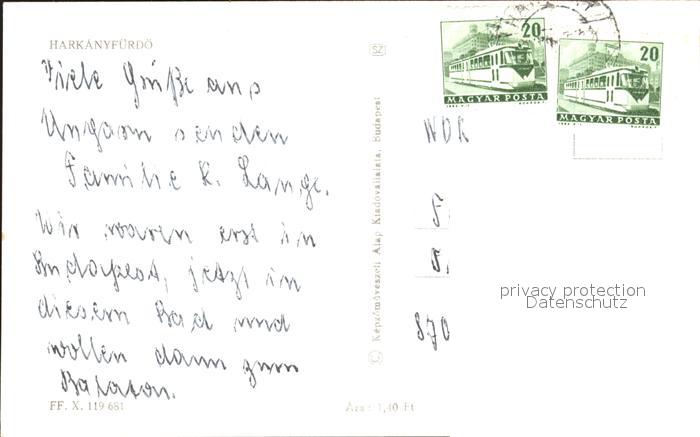 HARKÁNYFÜRDŐ
Viele Grüße aus
Ungarn senden
Familie K. Lange.
Wir waren erst in
Budapest, jetzt in
diesem Bad und
wollen dann zum
Balaton.
FF. X. 119 681
Ára: 1,40 Ft
© Képzőművészeti Alap Kiadóvállalata, Budapest
SZ
20
MAGYAR POSTA
20
MAGYAR POSTA
WDR
F
8.
870
privacy protection
Datenschutz